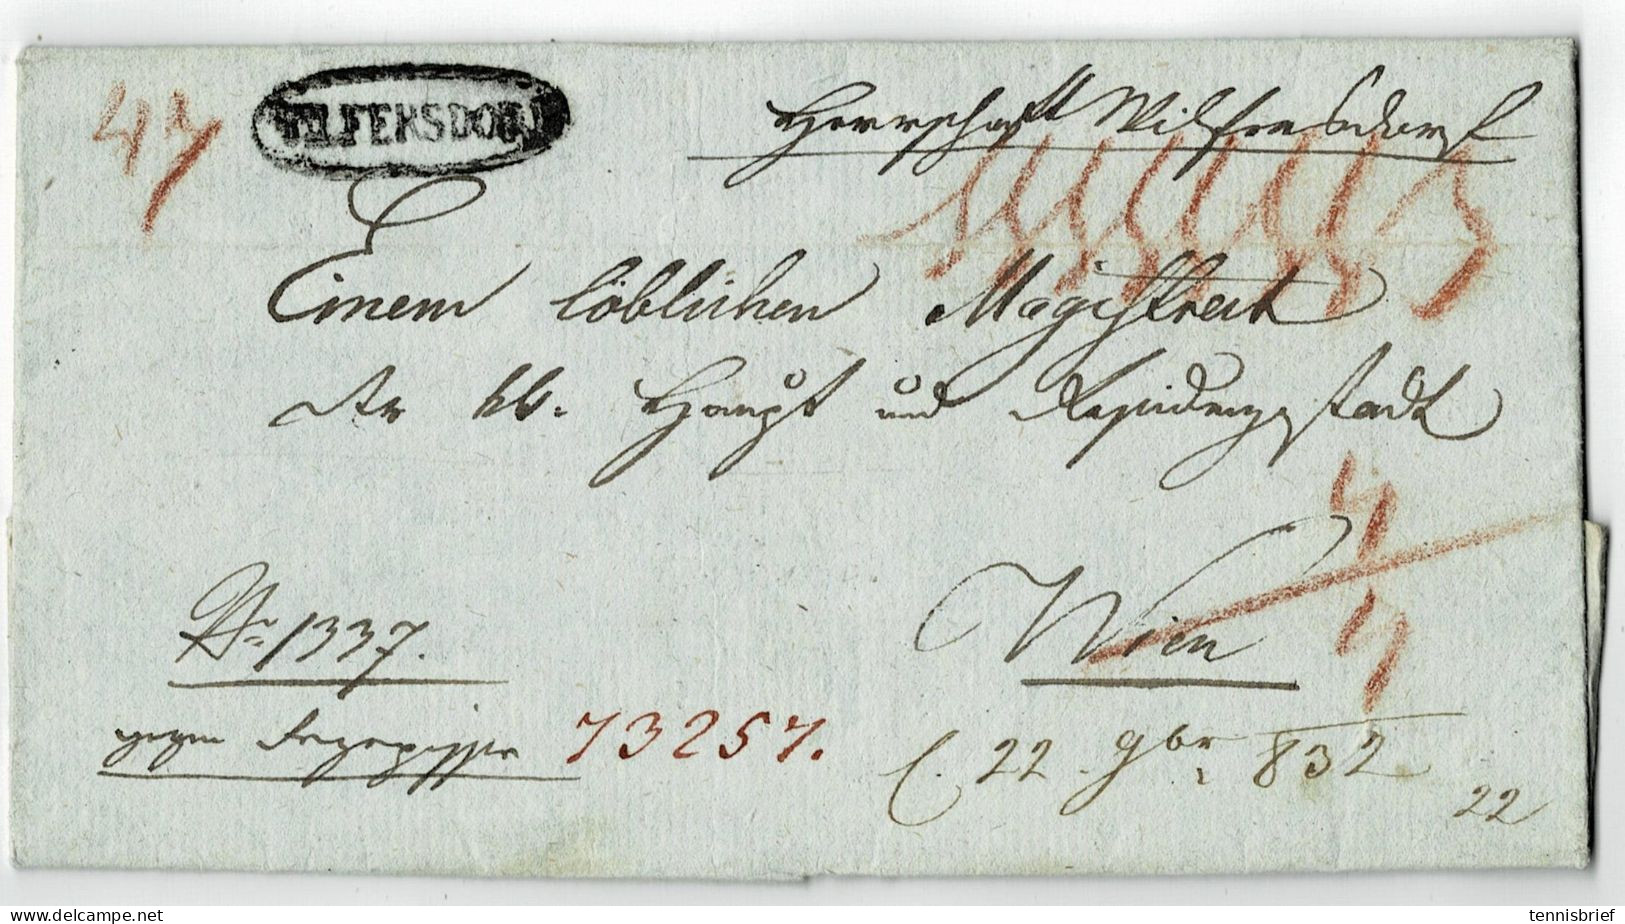 WILFERSDORF
Herrschaft Wilfersdorf
Einem löblichen Magistrat
der kk. Haupt und Residenzstadt
Wien
Nr 1337.
gegen Retzepisse 73257.
22 9br 832
22
delcampe.net
tennisbrief